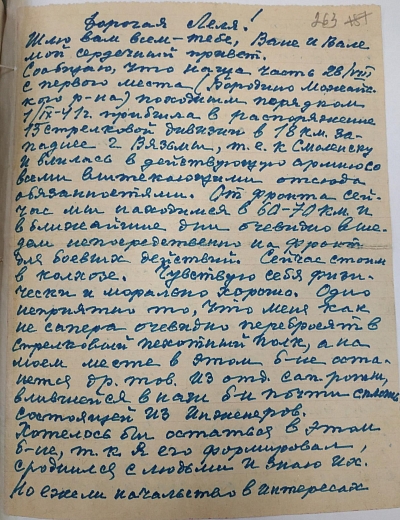 Дорогая Леля! 263
Шлю вам всем-тебе, Ване и Вале
мой сердечный привет.
Сообщаю, что наша часть 28/VIII
с первого места (Бородино Можайс-
кого р-на) походным порядком
1/IX-41г. прибыла в распоряжение
13 стрелковой дивизии в 18 км. за-
паднее г. Вязьмы, т.е. к Смоленску
и влилась в действующую армию со
всеми вытекающими отсюда
обязанностями. От фронта сей-
час мы находимся в 60-70 км. и
в ближайшие дни очевидно выше-
дем непосредственно на фронт
для боевых действий. Сейчас стоим
в колхозе. Чувствую себя физи-
чески и морально хорошо. Одно
неприятно то, что меня как
не сапера очевидно перебросят в
стрелковый пехотный полк, а на
моем месте в этом б-не оста-
нется др. тов. из отд. сап. роты,
влившейся в наш б-н почти сплошь
состоящей из инженеров.
Хотелось бы остаться в этом
б-не, т.к я его формировал,
сроднился с людьми и знаю их.
Но ежели начальство в интересах